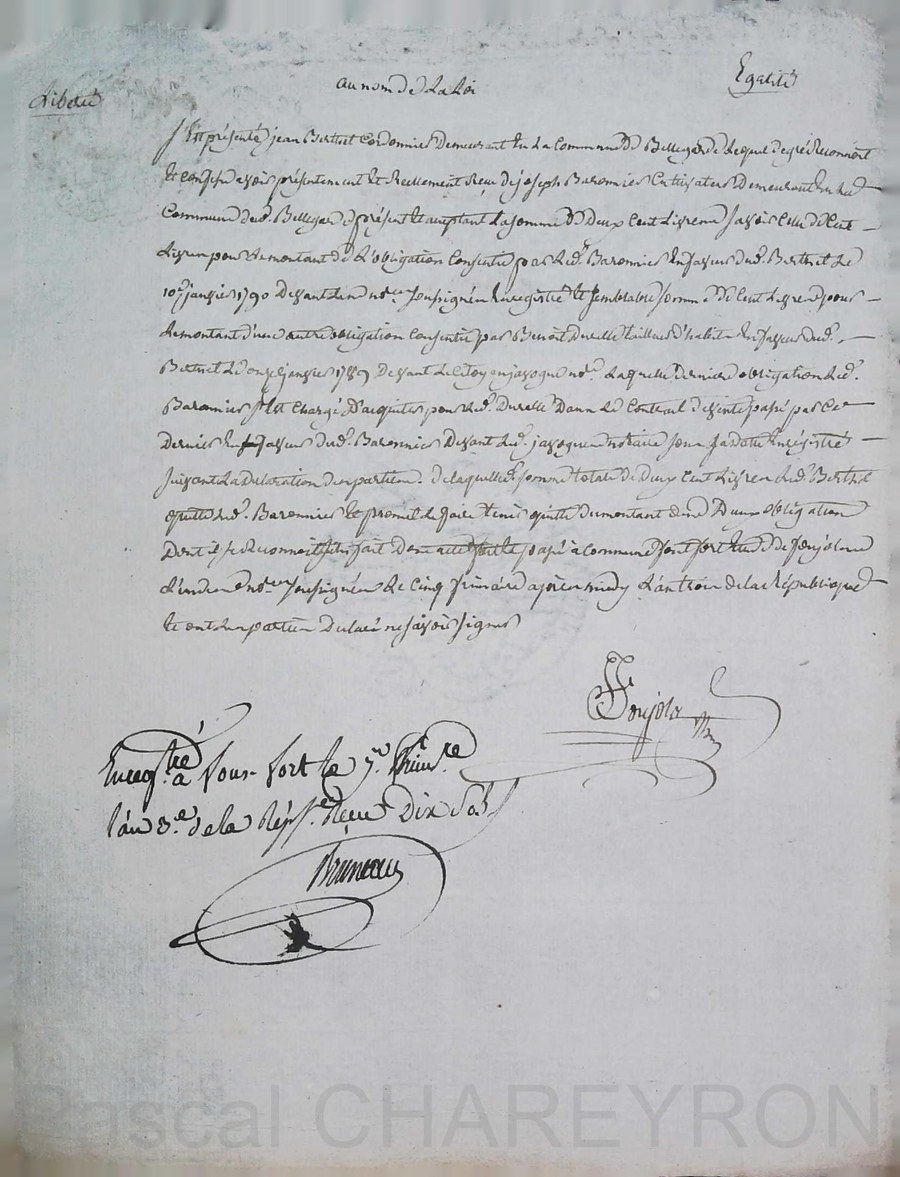 Liberté
au nom de la Loi
Egalité
S'est présenté jean Berthet Cordonnier demeurant en la Commune de Bellegarde Lequel de gré Reconnoit
et confesse avoir présentement et Reellement Reçu de joseph Baronnier Cultivateur demeurant en lad.
Commune dud. Bellegarde présent et acceptant la somme de Deux Cent Livres Savoir Celle de Cent
Livres pour le montant de L'obligation Consentie par led. Baronnier en faveur dud. Berthet le
10e janvier 1790 devant Les nores soussignés Enregistré et semblable somme de Cent Livres pour
le montant d'une autre obligation Consentie par Benoit Durelle tailleur d'habits en faveur dud.
Berthet le onze janvier 1789 devant le Citoyen javogue nore. laquelle derniere obligation led.
Baronnier s'est Chargé d'acquitter pour led. Durelle dans le Contrat de vente passé par Ce
dernier en faveur dud. Baronnier devant led. javogue notaire sous sa datte Enregistré
suivant la declaration des parties. de laquelle somme totale de Deux Cent Livres led. Berthet
quitte led. Baronnier et promet le faire tenir quitte du montant desd. Deux obligation
dont il se Reconnoit satisfait dont acte fait et passé a commune fontfort Etude de Poujola
L'un des nores soussignés le Cinq frimaire apres midy L'an trois de la République
et ont les parties declaré ne savoir signer
Poujola
Enregtré a fons-fort le 7. Frimre
l'an 3.e de la Rép. Reçu Dix Sols
Bruneau
Pascal CHAREYRON